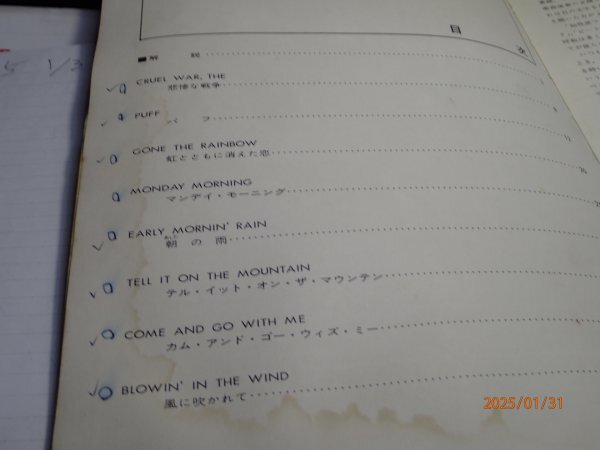 目 次
■解 説
CRUEL WAR, THE
悲惨な戦争
PUFF
パ フ
GONE THE RAINBOW
虹とともに消えた恋
MONDAY MORNING
マンデイ・モーニング
EARLY MORNIN' RAIN
朝の雨
TELL IT ON THE MOUNTAIN
テル・イット・オン・ザ・マウンテン
COME AND GO WITH ME
カム・アンド・ゴー・ウィズ・ミー
BLOWIN' IN THE WIND
風に吹かれて
2025/01/31